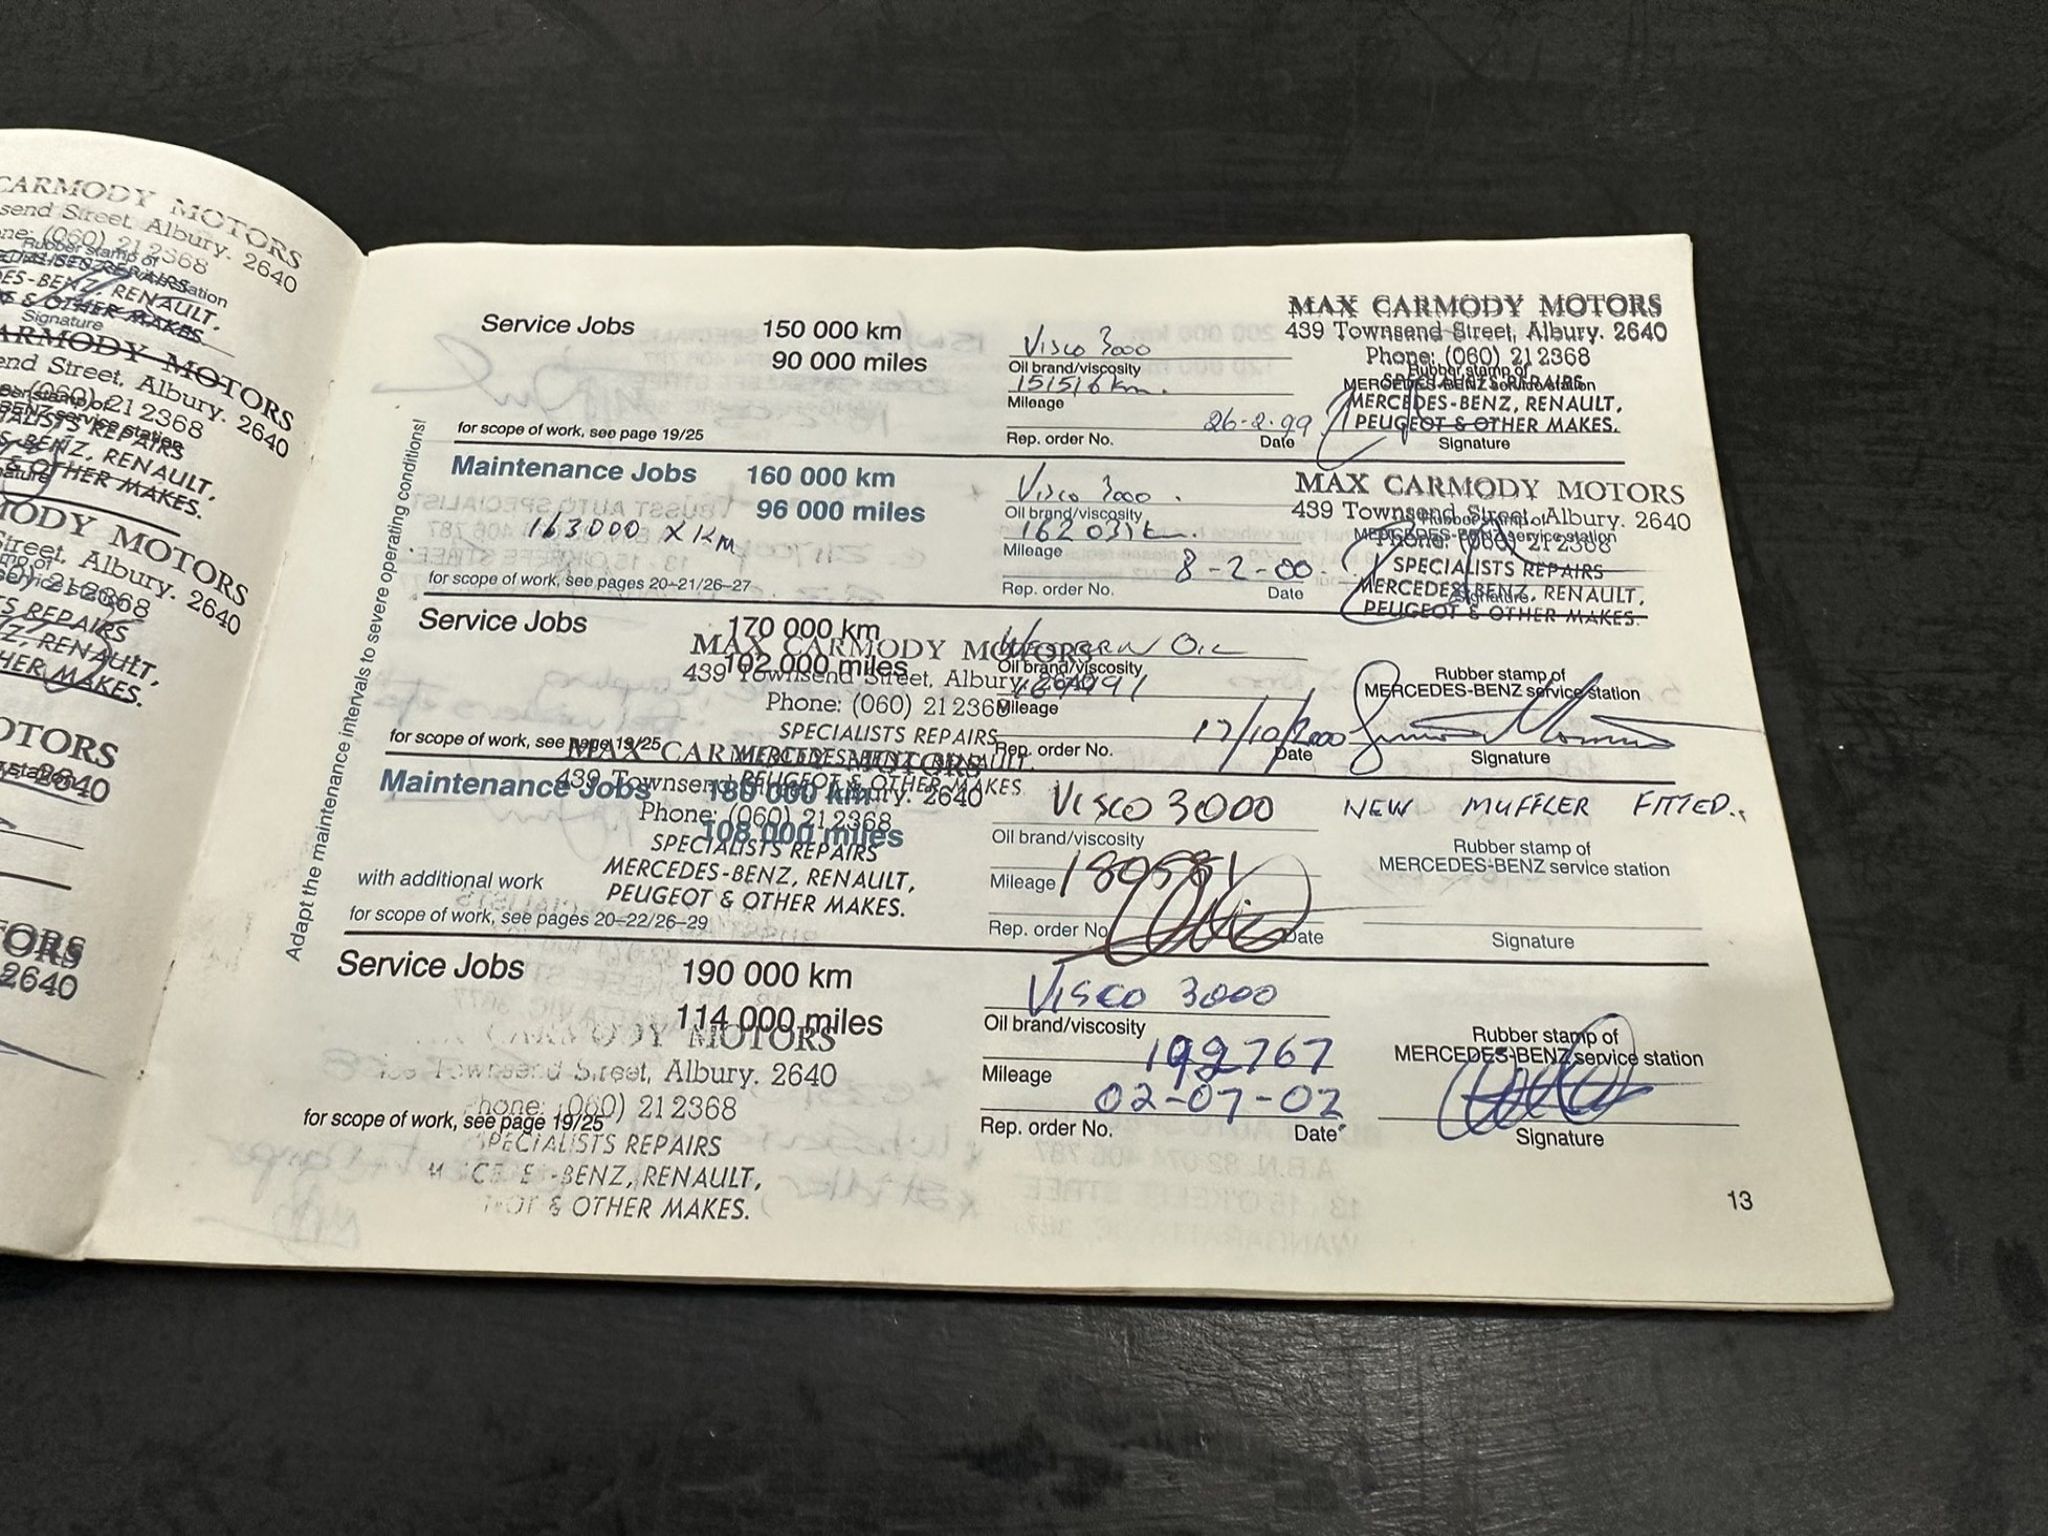 CARMODY MOTORS
send Street, Albury. 2640
ne: (060) 21 2368
Rubber stamp of
ES-BENZ, RENAULT,
& OTHER MAKES.
Signature
ARMODY MOTORS
end Street, Albury. 2640
(060) 21 2368
BENZ service station
ALISTS REPAIRS
S-BENZ, RENAULT,
& OTHER MAKES.
MODY MOTORS
Street, Albury. 2640
212368
TS REPAIRS
Z, RENAULT,
HER MAKES.
OTORS
2640
ORS
2640
Adapt the maintenance intervals to severe operating conditions!
Service Jobs 150 000 km
90 000 miles
for scope of work, see page 19/25
Visco 3000
Oil brand/viscosity
151516 km.
Mileage
26-2-99
Rep. order No. Date
MAX CARMODY MOTORS
439 Townsend Street, Albury. 2640
Phone: (060) 21 2368
Rubber stamp of
MERCEDES-BENZ service station
SPECIALISTS REPAIRS
MERCEDES-BENZ, RENAULT,
PEUGEOT & OTHER MAKES.
Signature
Maintenance Jobs 160 000 km
96 000 miles
163000 X KM
for scope of work, see pages 20–21/26–27
Visco 3000
Oil brand/viscosity
162031 k
Mileage
8-2-00
Rep. order No. Date
MAX CARMODY MOTORS
439 Townsend Street, Albury. 2640
Rubber stamp of
MERCEDES-BENZ service station
Phone: (060) 21 2368
SPECIALISTS REPAIRS
MERCEDES-BENZ, RENAULT,
Signature
PEUGEOT & OTHER MAKES.
Service Jobs 170 000 km
102 000 miles
MAX CARMODY MOTORS
439 Townsend Street, Albury. 2640
Phone: (060) 21 2368
SPECIALISTS REPAIRS
MERCEDES-BENZ, RENAULT,
PEUGEOT & OTHER MAKES
for scope of work, see page 19/25
Western Oil
Oil brand/viscosity
Mileage
17/10/2000
Rep. order No. Date
Rubber stamp of
MERCEDES-BENZ service station
Signature
Maintenance Jobs 180 000 km
108 000 miles
MAX CARMODY MOTORS
439 Townsend Street, Albury. 2640
Phone: (060) 21 2368
SPECIALISTS REPAIRS
MERCEDES-BENZ, RENAULT,
PEUGEOT & OTHER MAKES.
with additional work
for scope of work, see pages 20–22/26–29
Visco 3000
Oil brand/viscosity
Mileage 180581
Rep. order No. Date
NEW MUFFLER FITTED.
Rubber stamp of
MERCEDES-BENZ service station
Signature
Service Jobs 190 000 km
114 000 miles
CARMODY MOTORS
Townsend Street, Albury. 2640
Phone: (060) 21 2368
for scope of work, see page 19/25
SPECIALISTS REPAIRS
-BENZ, RENAULT,
& OTHER MAKES.
Visco 3000
Oil brand/viscosity
192767
Mileage
02-07-02
Rep. order No. Date
Rubber stamp of
MERCEDES-BENZ service station
Signature
13